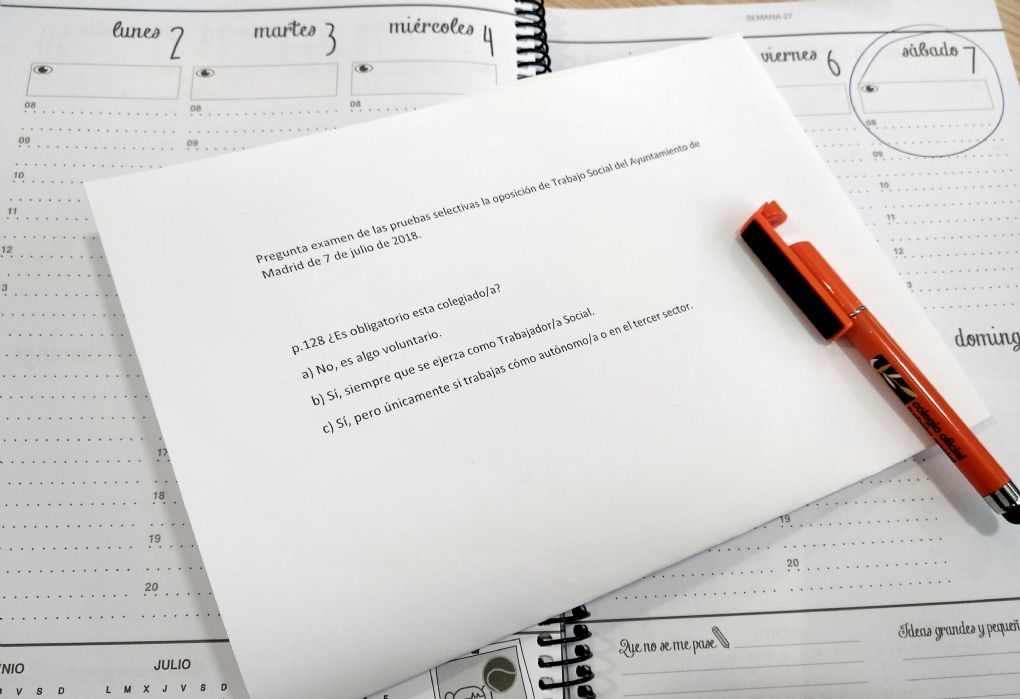 SEMANA 27
lunes 2
martes 3
miércoles 4
viernes 6
sábado 7
08
08
08
08
09
09
09
10
10
11
11
12
12
3
3
Pregunta examen de las pruebas selectivas la oposición de Trabajo Social del Ayuntamiento de
Madrid de 7 de julio de 2018.
p.128 ¿Es obligatorio esta colegiado/a?
a) No, es algo voluntario.
b) Sí, siempre que se ejerza como Trabajador/a Social.
c) Sí, pero únicamente si trabajas cómo autónomo/a o en el tercer sector.
doming
colegio oficial
17
18
19
20
19
20
Que no se me pase
Ideas grandes y pequeñ
NIO
V S D
JULIO
L M X J V S D